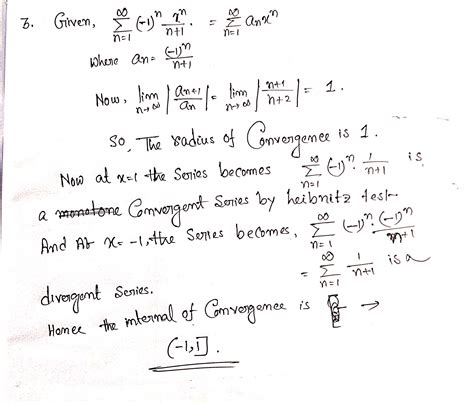 3. Given, ∑_{n=1}^{∞} (-1)^n x^n/(n+1). = ∑_{n=1}^{∞} a_n x^n
where a_n = (-1)^n/(n+1)
Now, lim_{n→∞} |a_{n+1}/a_n| = lim_{n→∞} |(n+1)/(n+2)| = 1.
So, The radius of Convergence is 1.
Now at x=1 the Series becomes ∑_{n=1}^{∞} (-1)^n · 1/(n+1) is
a Convergent Series by leibnitz test
And At x = -1, the Series becomes, ∑_{n=1}^{∞} (-1)^n · (-1)^n/(n+1)
= ∑_{n=1}^{∞} 1/(n+1) is a
divergent Series.
Hence the interval of Convergence is →
(-1,1].